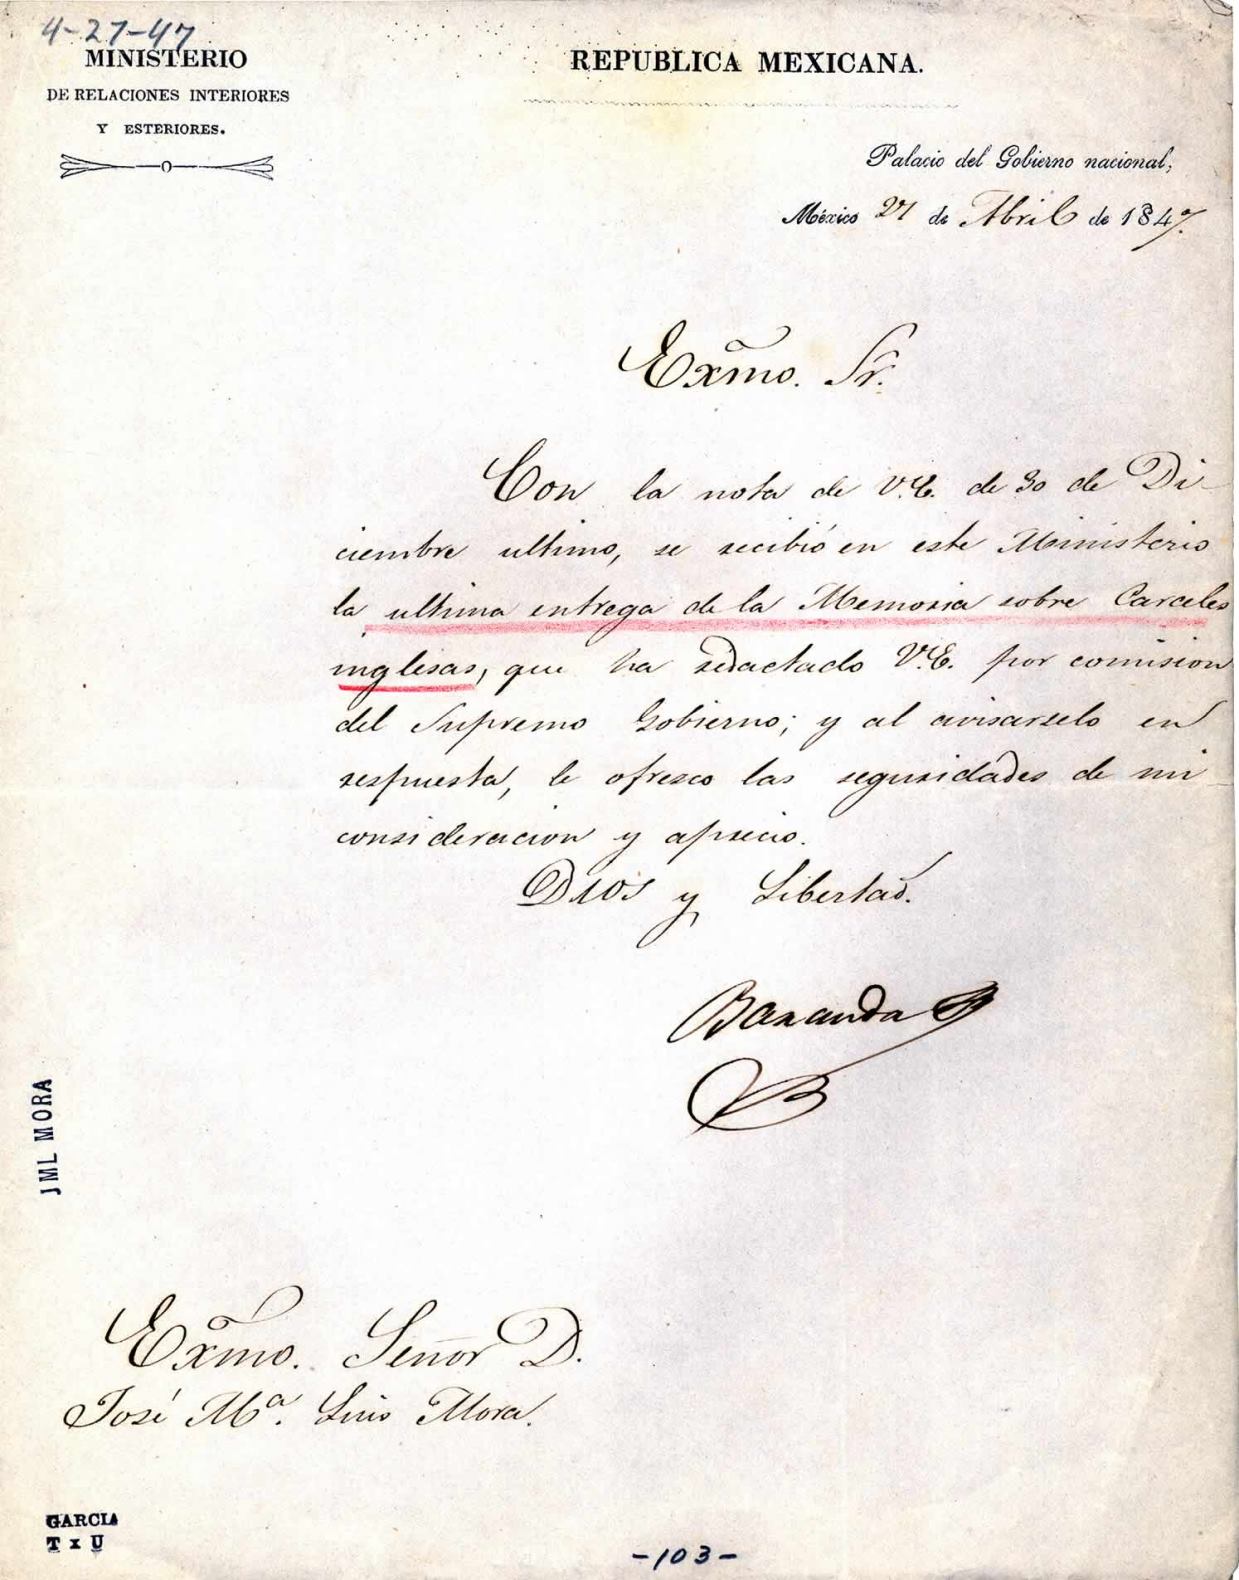 4-27-47
MINISTERIO
DE RELACIONES INTERIORES
Y ESTERIORES.
REPUBLICA MEXICANA.
Palacio del Gobierno nacional,
México 27 de Abril de 1847.
Exmo. Sr.
Con la nota de V.E. de 30 de Di-
ciembre ultimo, se recibió en este Ministerio
la ultima entrega de la Memoria sobre Carceles
inglesas, que ha redactado V.E. por comision
del Supremo Gobierno; y al avisarselo en
respuesta, le ofresco las seguridades de mi
consideracion y aprecio.
Dios y Libertad.
Baranda
JML MORA
Exmo. Señor D.
José Ma. Luis Mora.
GARCIA
T x U
-103-